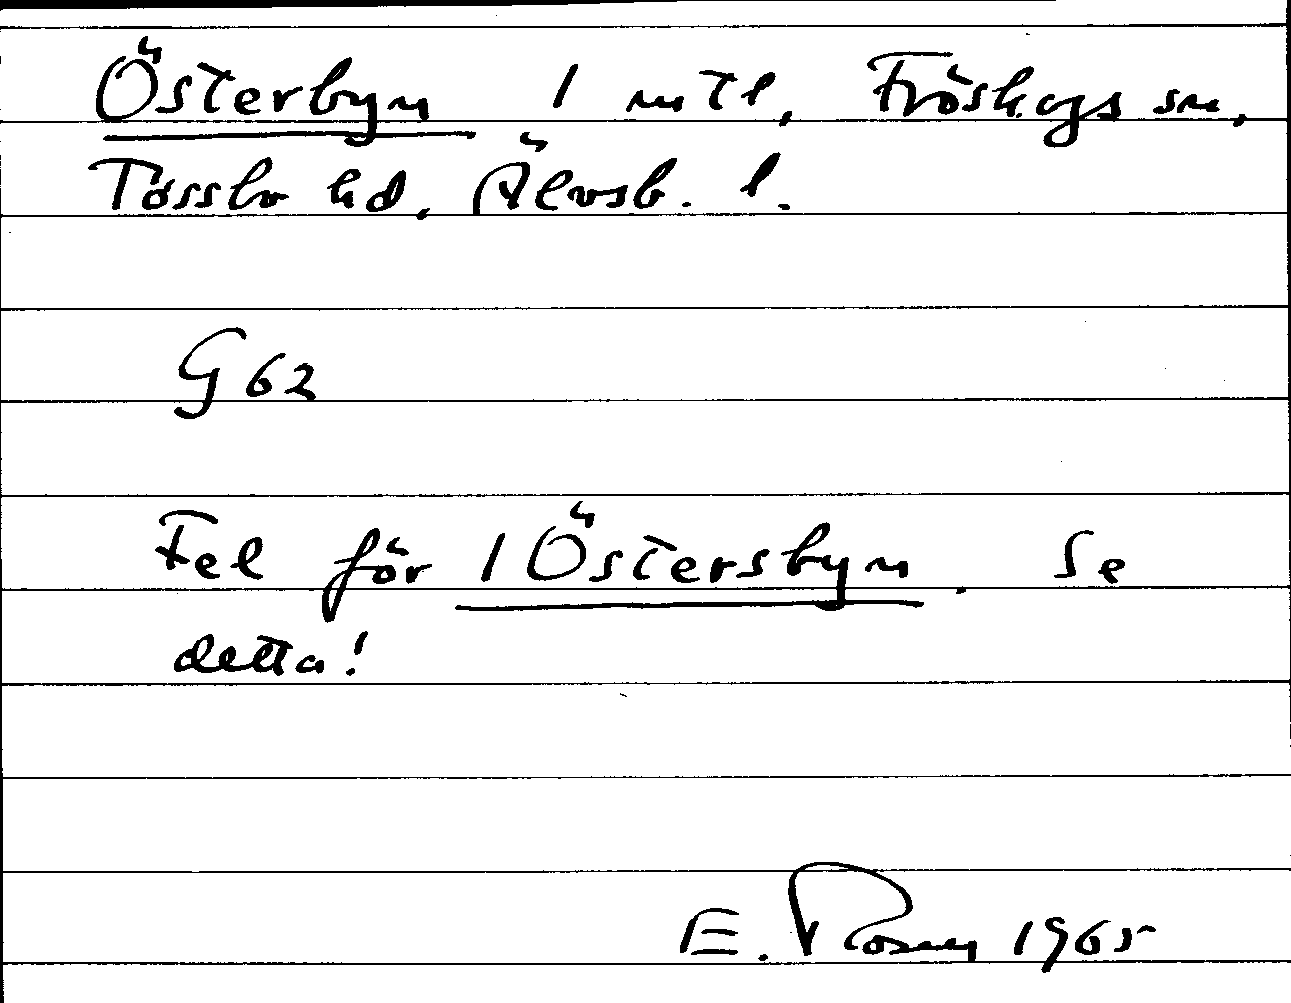 Österbyn 1 mtl, Fröskogs sn,
Tössbo hd, Älvsb. l.
G 62
Fel för 1 Östersbyn. Se
detta!
E. Rosen 1965